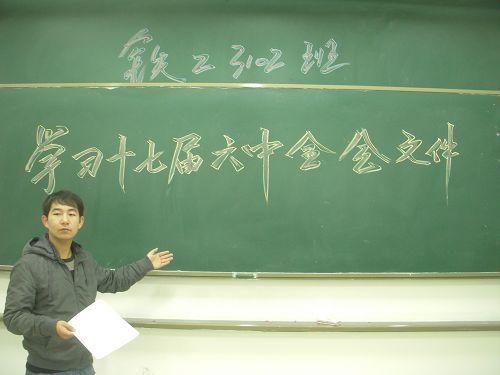 铁工3102班
学习十七届六中全会文件